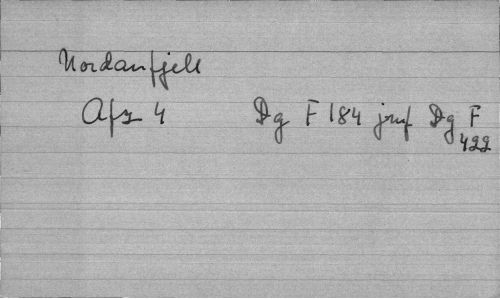 Nordanfjell
Afz 4 Dg F 184 jmf Dg F
422